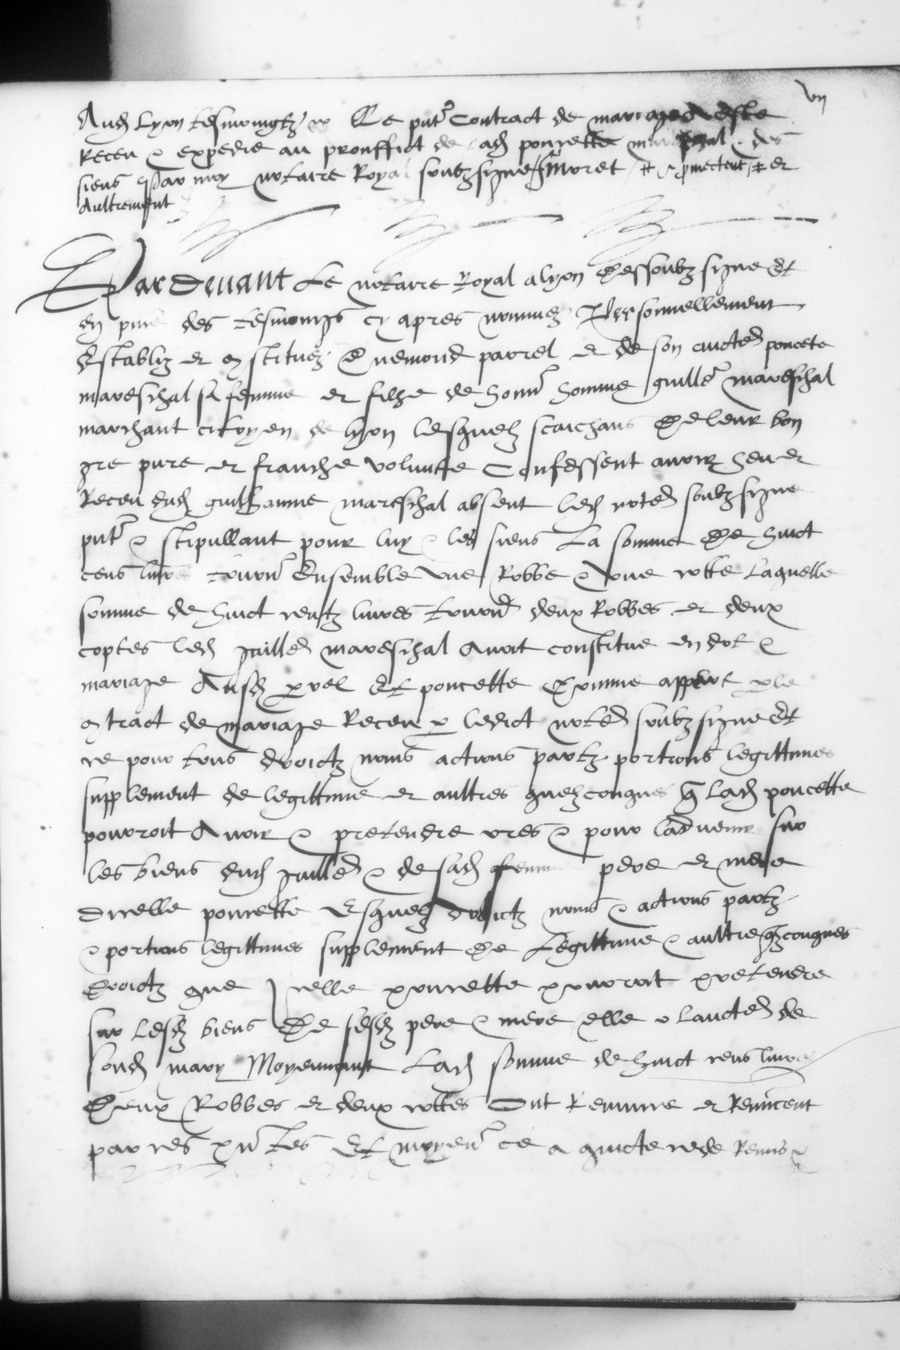 vii
Aud Lyon tesmoingtz Ce pnt contract de mariage A este
Receu & expedie au prouffict de lad poncette mareschal des
siens par moy notaire Royal soubzsigne Moret
Aultrement
Pardevant Le notaire Royal a lyon dessoubz signe Et
en pnce des tesmoings cy apres nommez Personnellement
Establiz et constituez Enemond parrel et de son aucte poncete
mareschal sa femme et filhe de honn homme guille mareschal
marchant citoyen de lyon lesquelz scaichans de leur bon
gre pure et franche volunte Confessent avoir heu et
Receu dud guilhaume mareschal absent led note soubzsigne
pnt & stipullant pour luy & les siens La somme de huict
cens livres tourn Ensemble une Robbe & une cotte Laquelle
somme de huict centz livres tourn deux Robbes et deux
coptes led guille mareschal Avoit constitue en dot &
mariage Ausd parrel Et poncette Comme appert par le
contract de mariage Receu par ledict note soubzsigne Et
ce pour tous droictz noms actions partz portions legittimes
supplement de legittime et aultres quelzconques que lad poncette
pourroit Avoir & pretendre ores & pour ladvenir sur
les biens dud guille & de sad femme pere et mere
dicelle poncette Esquelz droictz noms & actions partz
& portions legittimes supplement de Legittime & aultres qzconques
droictz que icelle poncette pourroit pretendre
sur lesd biens de sesd pere & mere elle o laucte de
sond mary Moyennant Lad somme de huict cens livres
Deux Robbes et deux cottes Ont Renunce et Renuncent
par ces pntes Et moyen ce a quicte cede Remis &